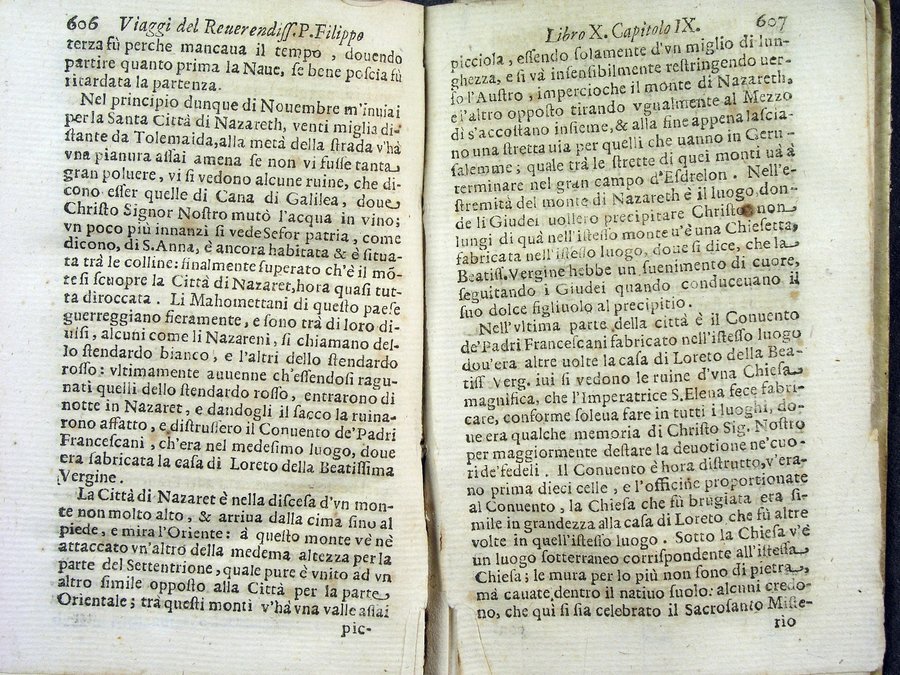 606 Viaggi del Reuerendiſſ. P. Filippo
terza fù perche mancaua il tempo, douendo
partire quanto prima la Naue, ſe bene poſcia fù
ritardata la partenza.
Nel principio dunque di Nouembre m'inuiai
per la Santa Città di Nazareth, venti miglia di-
ſtante da Tolemaida, alla metà della ſtrada v'hà
vna pianura aſſai amena ſe non vi fuſſe tanta
gran poluere, vi ſi vedono alcune ruine, che di-
cono eſſer quelle di Cana di Galilea, doue
Chriſto Signor Noſtro mutò l'acqua in vino;
vn poco più innanzi ſi vede Sefor patria, come
dicono, di S. Anna, è ancora habitata & è ſitua-
ta trà le colline: finalmente ſuperato ch'è il mō-
te ſi ſcuopre la Città di Nazaret, hora quaſi tut-
ta diroccata. Li Mahomettani di queſto paeſe
guerreggiano fieramente, e ſono trà di loro di-
uiſi, alcuni come li Nazareni, ſi chiamano del-
lo ſtendardo bianco, e l'altri dello ſtendardo
roſſo: vltimamente auuenne ch'eſſendoſi ragu-
nati quelli dello ſtendardo roſſo, entrarono di
notte in Nazaret, e dandogli il ſacco la ruina-
rono affatto, e diſtruſſero il Conuento de' Padri
Franceſcani, ch'era nel medeſimo luogo, doue
era fabricata la caſa di Loreto della Beatiſſima
Vergine.
La Città di Nazaret è nella diſceſa d'vn mon-
te non molto alto, & arriua dalla cima ſino al
piede, e mira l'Oriente: à queſto monte vè nè
attaccato vn'altro della medema altezza per la
parte del Settentrione, quale pure è vnito ad vn
altro ſimile oppoſto alla Città per la parte
Orientale; trà queſti monti v'hà vna valle aſſai
pic-
Libro X. Capitolo IX. 607
picciola, eſſendo ſolamente d'vn miglio di lun-
ghezza, e ſi và inſenſibilmente reſtringendo uer-
ſo l'Auſtro, impercioche il monte di Nazareth,
e l'altro oppoſto tirando vgualmente al Mezzo
dì s'accoſtano inſieme, & alla fine appena laſcia-
no una ſtretta uia per quelli che uanno in Geru-
ſalemme; quale trà le ſtrette di quei monti uà à
terminare nel gran campo d'Eſdrelon. Nell'e-
ſtremità del monte di Nazareth è il luogo, don-
de li Giudei uollero precipitare Chriſto, non
lungi di quà nell'iſteſſo monte u'è una Chieſetta,
fabricata nell'iſteſſo luogo, doue ſi dice, che la
Beatiſſ. Vergine hebbe un ſuenimento di cuore,
ſeguitando i Giudei quando conduceuano il
ſuo dolce figliuolo al precipitio.
Nell'vltima parte della città è il Conuento
de' Padri Franceſcani fabricato nell'iſteſſo luogo
dou'era altre uolte la caſa di Loreto della Bea-
tiſſ Verg. iui ſi vedono le ruine d'vna Chieſa
magnifica, che l'Imperatrice S. Elena fece fabri-
care, conforme ſoleua fare in tutti i luoghi, do-
ue era qualche memoria di Chriſto Sig. Noſtro
per maggiormente deſtare la deuotione ne' cuo-
ri de' fedeli. Il Conuento è hora diſtrutto, v'era-
no prima dieci celle, e l'officine proportionate
al Conuento, la Chieſa che fù brugiata era ſi-
mile in grandezza alla caſa di Loreto che fù altre
volte in quell'iſteſſo luogo. Sotto la Chieſa v'è
un luogo ſotterraneo corriſpondente all'iſteſſa
Chieſa; le mura per lo più non ſono di pietra,
ma cauate dentro il natiuo ſuolo: alcuni credo-
no, che quì ſi ſia celebrato il Sacroſanto Miſte-
rio